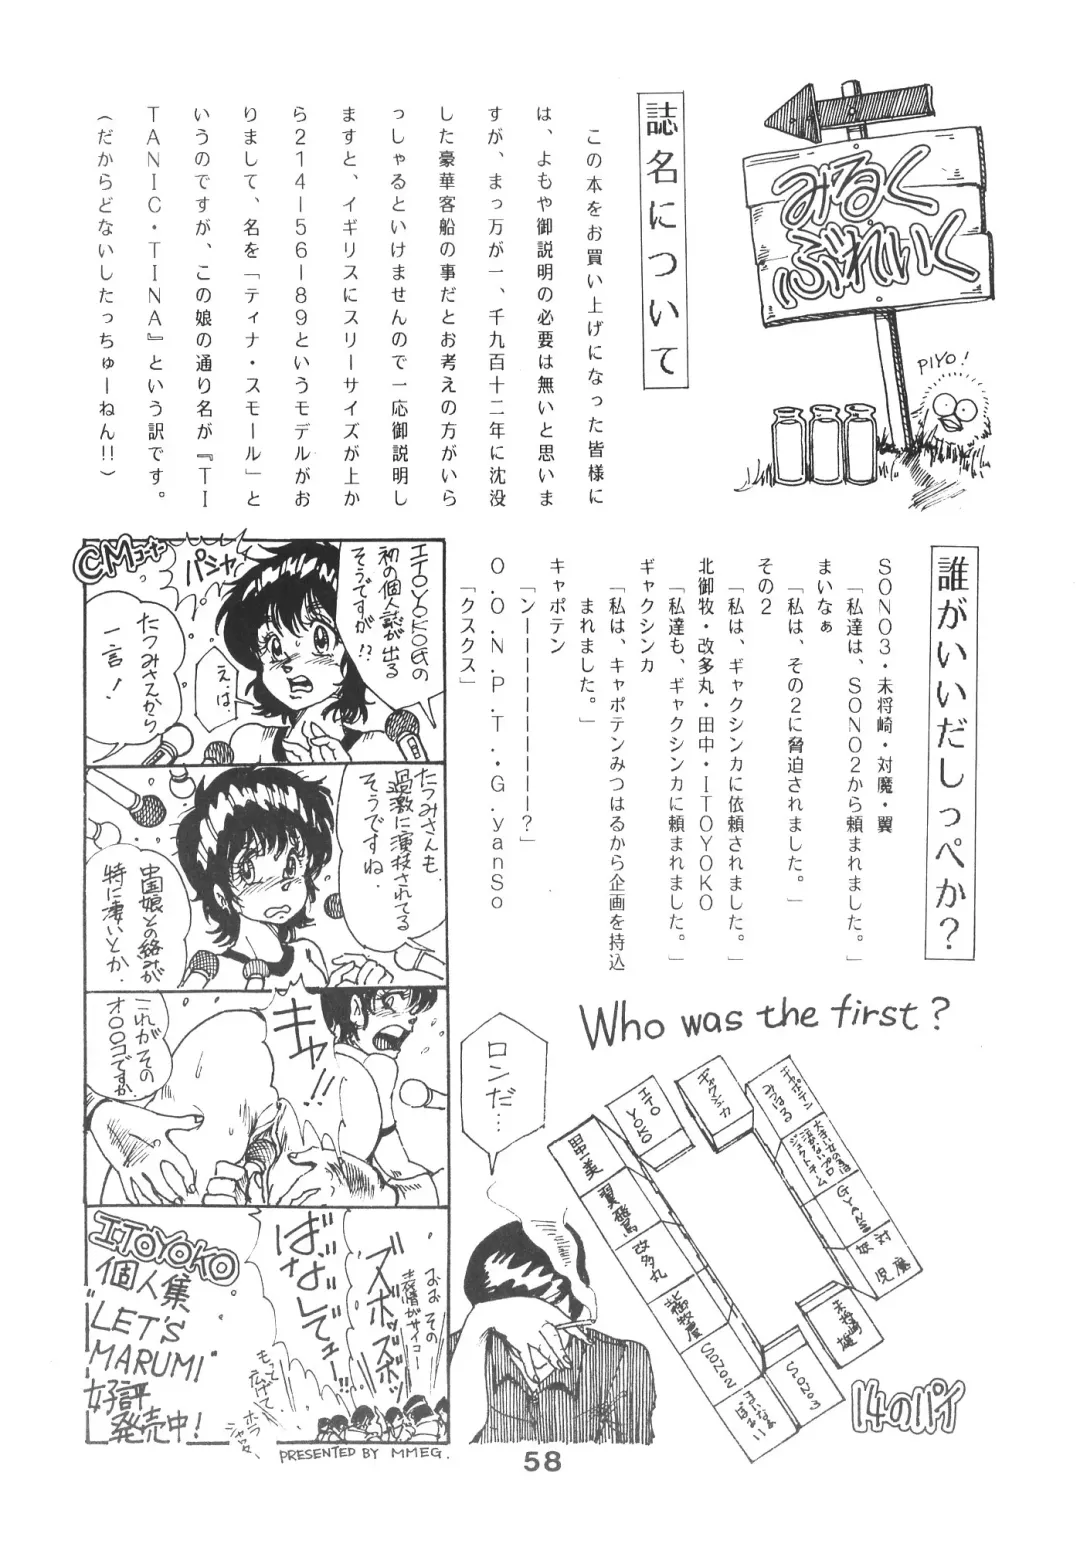 みるく
ぶれいく
PIYO!
誌名について
この本をお買い上げになった皆様に
は、よもや御説明の必要は無いと思いま
すが、まっ万が一、千九百十二年に沈没
した豪華客船の事だとお考えの方がいら
っしゃるといけませんので一応御説明し
ますと、イギリスにスリーサイズが上か
ら214―56―89というモデルがお
りまして、名を「ティナ・スモール」と
いうのですが、この娘の通り名が『TI
TANIC・TINA』という訳です。
(だからどないしたっちゅーねん!!)
誰がいいだしっぺか?
SONO3・未将崎・対魔・翼
「私達は、SONO2から頼まれました。」
まいなぁ
「私は、その2に脅迫されました。」
その2
「私は、ギャクシンカに依頼されました。」
北御牧・改多丸・田中・ITOYOKO
「私達も、ギャクシンカに頼まれました。」
ギャクシンカ
「私は、キャポテンみつはるから企画を持込
まれました。」
キャポテン
「ンーーーーーーーーー?」
O.O.N.P.T.G.yanso
「クスクス」
CMコーナー
ITOYOKO氏の
初の個人誌が出る
そうですが!?
パシャ
えは、
たつみさんから
一言!
たつみさんも
過激に演技されてる
そうですね.
中国娘との絡みが
特に凄いとか.
キャ!!
これがその
オ○○コですか
おお その
表情がサイコー
ズボッズボッ
ばなしてェー!!
もって
広げて.
ホラ
ITOYOKO
個人集
"LET'S
MARUMI"
好評
発売中!
PRESENTED BY MMEG.
Who was the first?
ロンだ…
キャポテン
みつはる
ギャクシンカ
ITO
YOKO
田中美
翼飛鳥
改多丸
北御牧慶
SONO2
まいなぁ
ぼぉい
SONO3
未将崎
雄
対魔
GYANSO
14のパイ
58